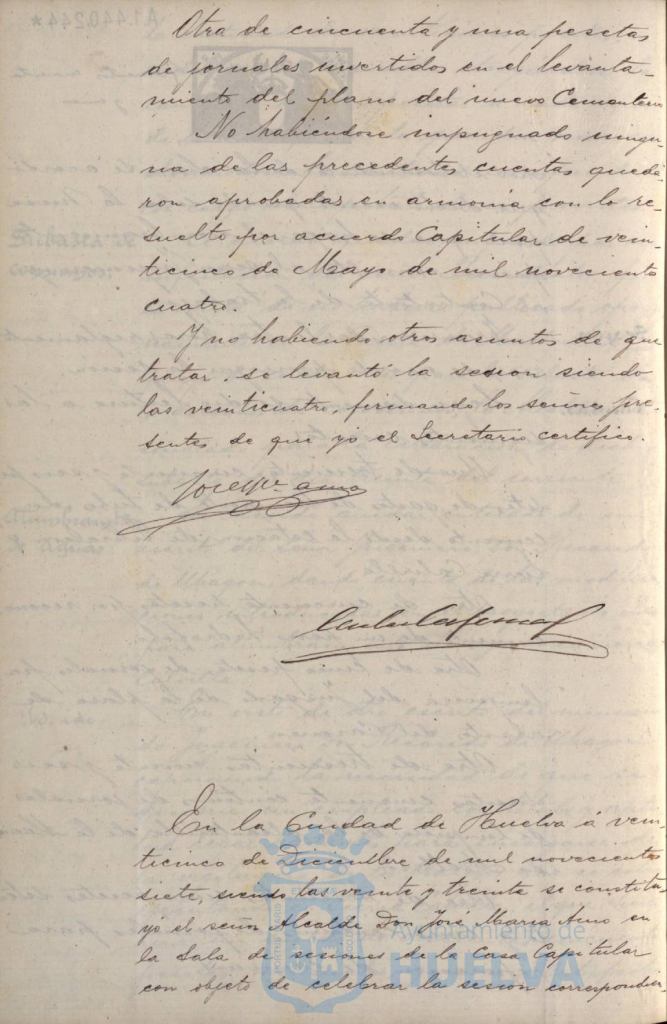 Otra de cincuenta y una pesetas
de jornales invertidos en el levanta-
miento del plano del nuevo Cementerio
No habiéndose impugnado ningu-
na de las precedentes cuentas queda-
ron aprobadas en armonía con lo re-
suelto por acuerdo Capitular de vein-
ticinco de Mayo de mil novecientos
cuatro.
Y no habiendo otros asuntos de que
tratar, se levantó la sesion siendo
las veinticuatro, firmando los señores pre-
sentes de que yo el Secretario certifico.
En la Ciudad de Huelva á vein-
ticinco de Diciembre de mil novecientos
siete, siendo las veinte y treinta se constitu-
yó el señor Alcalde Don José María Amo en
la Sala de sesiones de la Casa Capitular
con objeto de celebrar la sesión correspondien-
Ayuntamiento de
HUELVA